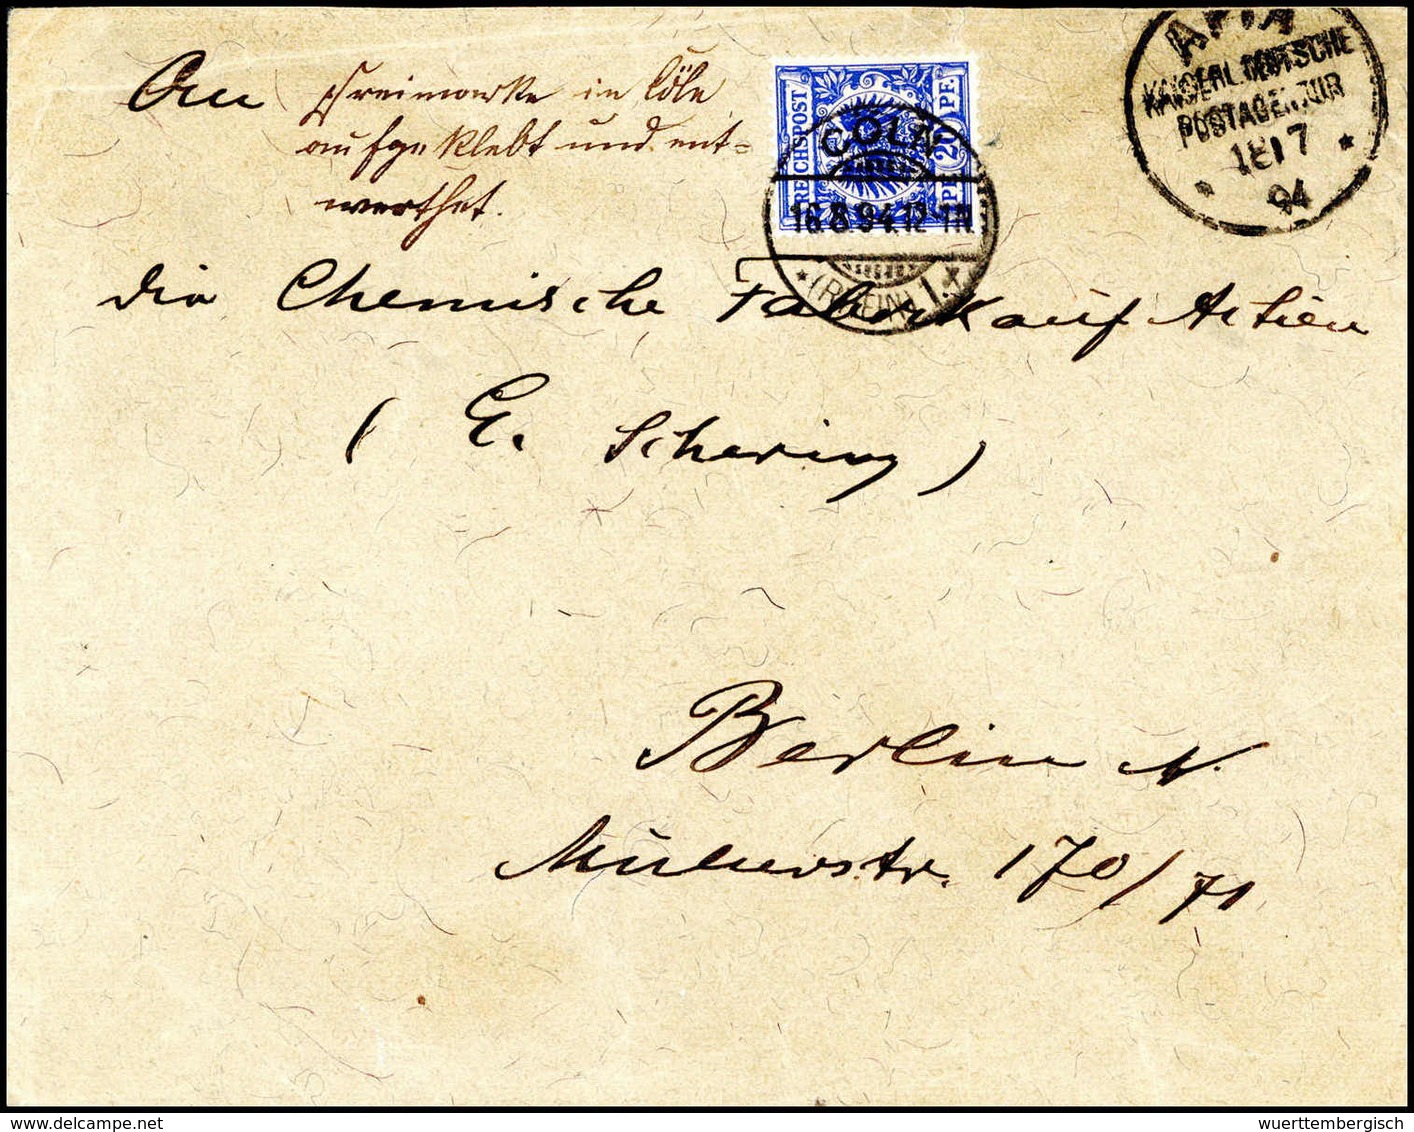 APIA
KAISERL. DEUTSCHE
POSTAGENTUR
18/7
94
An
Freimarke in Cöln
aufgeklebt und ent=
werthet.
REICHSPOST
20 PF. PF.
CÖLN
16.8.94.12-1N
* (RHEIN) 1. *
die Chemische Fabrik auf Actien
( E. Schering )
Berlin N.
Müllerstr. 170/71
wuerttembergisch